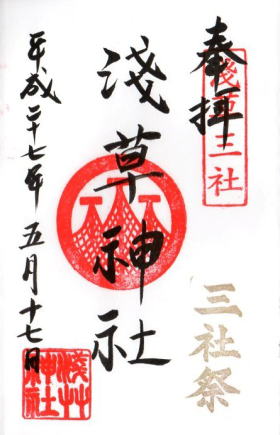 奉拝
淺草三社
三社祭
淺草神社
平成二十七年五月十七日
淺草神社之印